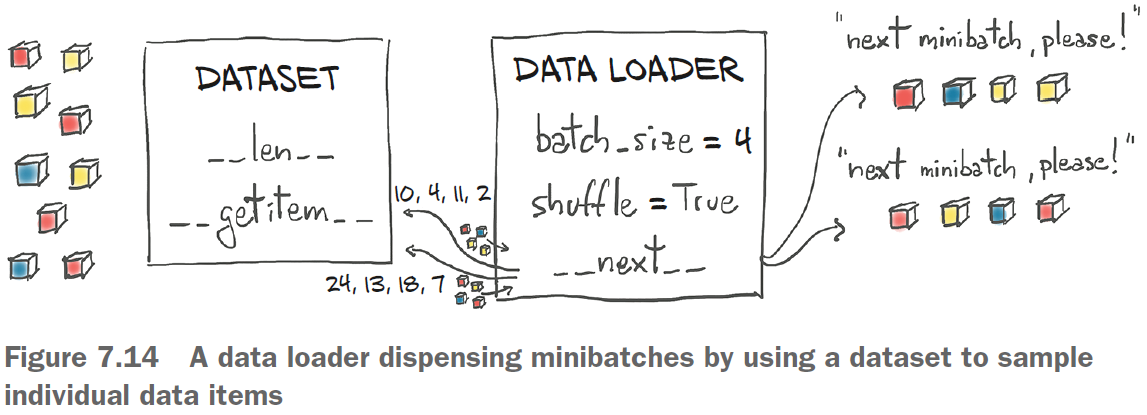 DATASET
__len__
__getitem__
10, 4, 11, 2
24, 13, 18, 7
DATA LOADER
batch_size = 4
shuffle = True
__next__
"next minibatch, please!"
"next minibatch, please!"
Figure 7.14 A data loader dispensing minibatches by using a dataset to sample
individual data items